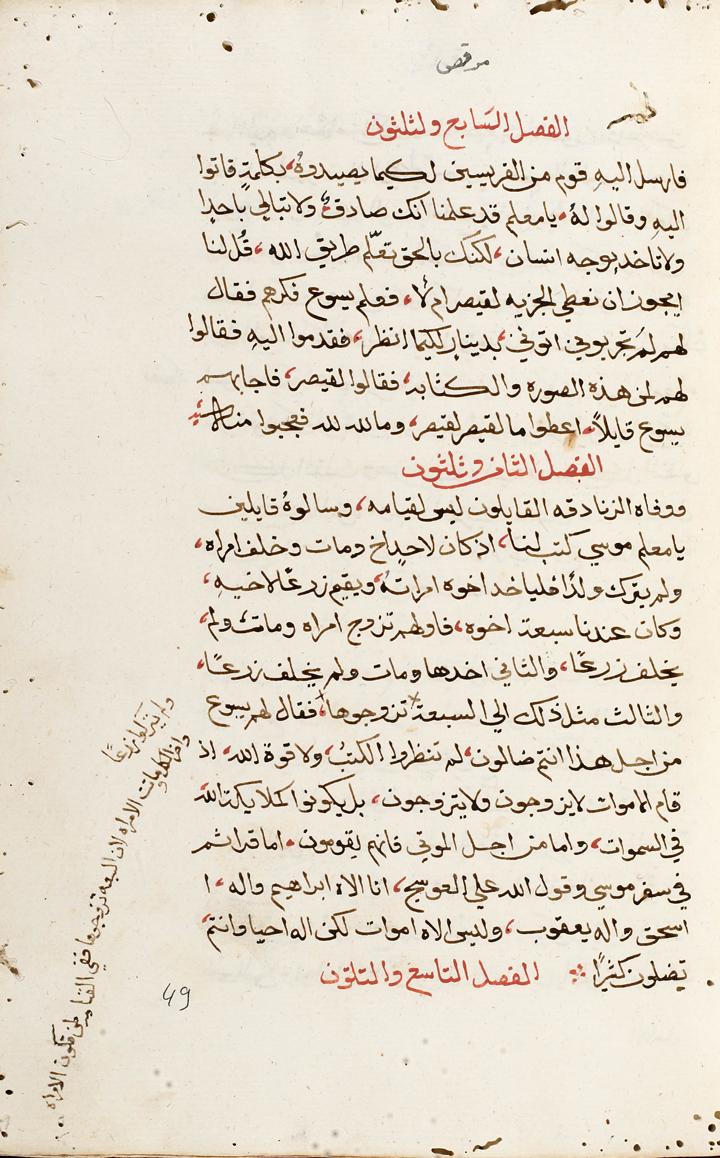 مرقص
الفصل السابع ولثلثون
فارسل اليه قوم من الفريسين لكيما يصيدوهُ بكلمةٍ فاتوا
اليه وقالوا لهُ يا معلم قد علمنا انك صادق ولا تبالي باحدٍ
ولا تاخد بوجه انسان، لكنك بالحق تعلّم طريق الله، قُل لنا
ايجوز ان نعطي الجزيه لقيصر ام لا، فعلم يسوع فكرهم فقال
لهم لمَ تجربوني اتوني، بدينارٍ لكيما انظر، فقدموا اليه فقالوا
لهم لمن هذه الصوره والكتابه، فقالوا لقيصر، فاجابهم
يسوع قايلاً، اعطوا ما لقيصر لقيصر، وما لله لله فعجبوا منه
الفصل الثامن وثلثون
ووفاه الزنادقه القايلون ليس لقيامه، وسالوهُ قايلين
يا معلم موسي كتب لنا، اذ كان لاحدٍ اخ ومات وخلف امراه،
ولم يترك ولدًا فلياخد اخوه امراتهُ، ويقيم زرعًا لاخيهِ،
وكان عندنا سبعة اخوه، فاولهم تزوج امراه ومات ولم،
يخلف زرعًا، والثاني اخدها ومات ولم يخلف زرعًا،
والثالث مثل ذلك الي السبعة تزوجوها، فقال لهم يسوع
من اجل هذا انتم ضالون، لم تنظروا الكتبُ، ولا قوة الله، اذ
قام الاموات لا يزوجون ولا يتزوجون، بل يكونوا كملايكة الله
في السموات، واما من اجل الموتي فانهم يقومون، اما قراتم
في سفر موسي وقول الله علي العوسج، انا الاه ابراهيم واله، ا
اسحق واله يعقوب، وليس الاه اموات لكن اله احيا وانتم
تضلون كثيرًا الفصل التاسع والثلثون
ولم يتركوا زرعًا
واخر الكل ماتت الامراه لان السبعه تزوجوها ففي القيامه لمن تكون الامراه
49